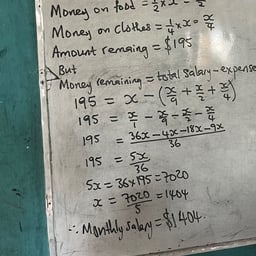 Money on food = 1/2 x x = x/2
Money on clothes = 1/4 x x = x/4
Amount remaing = $195
But
Money remaining = total salary - expense
195 = x - (x/9 + x/2 + x/4)
195 = x/1 - x/9 - x/2 - x/4
195 = 36x-4x-18x-9x/36
195 = 5x/36
5x = 36x195 = 7020
x = 7020/5 = 1404
∴ Monthly salary = $1404.